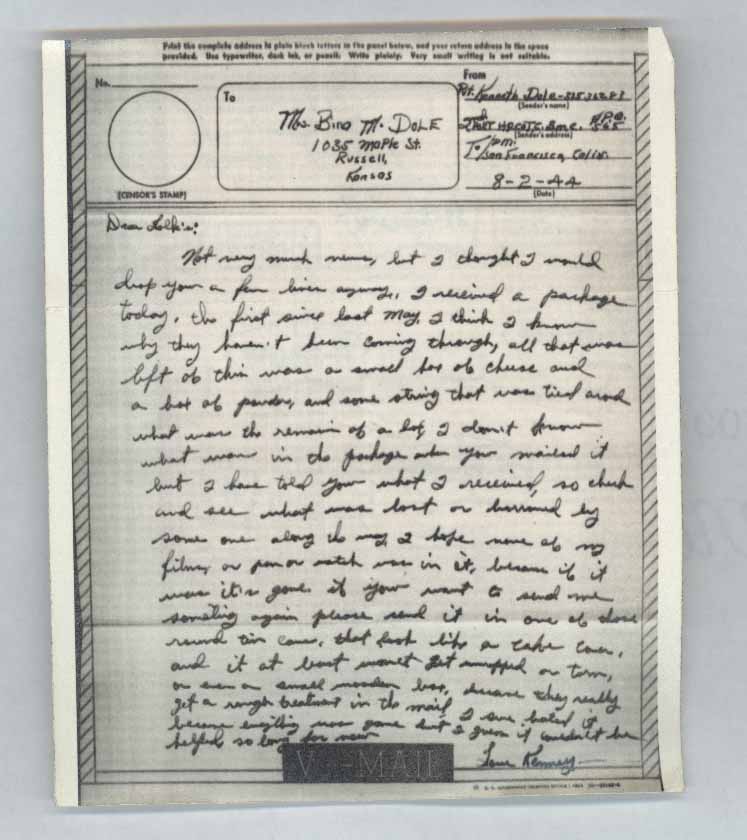 Print the complete address in plain block letters in the panel below, and your return address in the space
provided. Use typewriter, dark ink, or pencil. Write plainly. Very small writing is not suitable.
No.
(CENSOR'S STAMP)
To
Mrs. Bina M. Dole
1035 Maple St.
Russell,
Kansas
From
Pvt. Kenneth Dole-
(Sender's name)
A.P.O.
565
(Sender's address)
To P.m.
San Francisco, Calif.
8-2-44
(Date)
Dear Folk's:
Not very much news, but I thought I would
drop you a few lines anyway, I received a package
today, the first since last May, I think I know
why they haven't been coming through, all that was
left of this was a small box of cheese and
a box of powder, and some string that was tied around
what was the remains of a box, I don't know
what was in the package when you mailed it
but I have told you what I received, so check
and see what was lost or borrowed by
some one along the way, I hope none of my
films, or pen or watch was in it, because if it
was it's gone, if you want to send me
something again please send it in one of those
round tin cans, that look like a cake can,
and it at least won't get unwrapped or torn,
or even a small wooden box, because they really
get a rough treatment in the mail, I sure hated it
because everything was gone but I guess it couldn't be
helped so long for now
Love Kenney
V-MAIL
U. S. GOVERNMENT PRINTING OFFICE